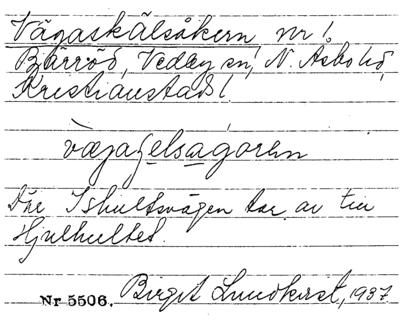 Vägaskälsåkern, nr 1.
Bärröd, Vedby sn, N. Åsbo hd,
Kristianstads l.
Där Ishultsvägen tar av till
Hjulhultet.
Nr 5506. Birgit Lundkvist, 1937